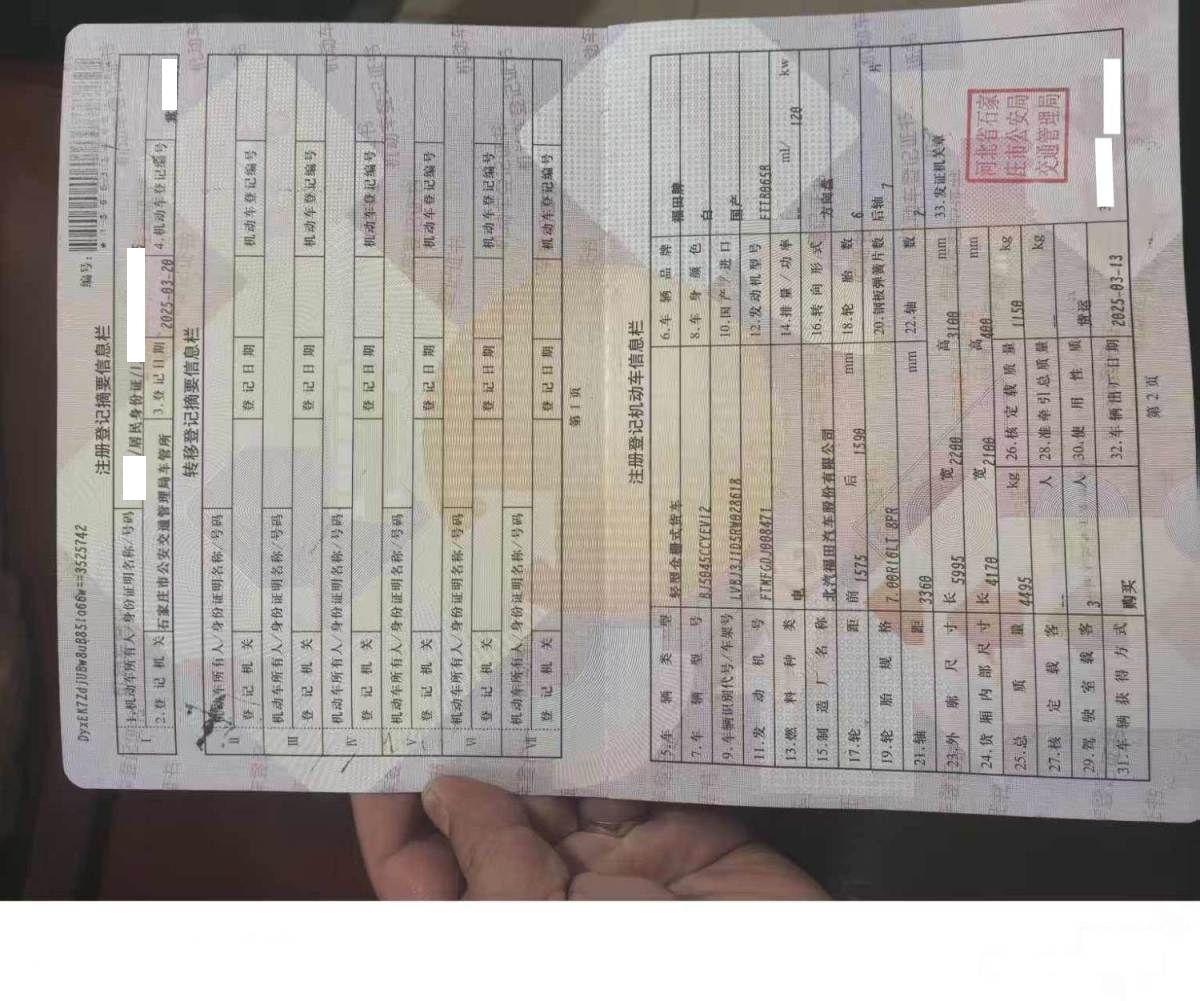 DyxEK7ZdjUBw8uBB51o6Gw==3525742
编号:
注册登记摘要信息栏
I 1.机动车所有人/身份证明名称/号码 /居民身份证/1
2.登记机关 石家庄市公安交通管理局车管所 3.登记日期 2025-03-20 4.机动车登记编号 冀
转移登记摘要信息栏
II 机动车所有人/身份证明名称/号码
登记机关 登记日期 机动车登记编号
III 机动车所有人/身份证明名称/号码
登记机关 登记日期 机动车登记编号
IV 机动车所有人/身份证明名称/号码
登记机关 登记日期 机动车登记编号
V 机动车所有人/身份证明名称/号码
登记机关 登记日期 机动车登记编号
VI 机动车所有人/身份证明名称/号码
登记机关 登记日期 机动车登记编号
VII 机动车所有人/身份证明名称/号码
登记机关 登记日期 机动车登记编号
第1页
注册登记机动车信息栏
5.车辆类型 轻型仓栅式货车 6.车辆品牌 福田牌
7.车辆型号 BJ5045CCYEV12 8.车身颜色 白
9.车辆识别代号/车架号 LVBJ3J1D5RW028618 10.国产/进口 国产
11.发动机号 FTMFGDJ008471 12.发动机型号 FTTB065B
13.燃料种类 电 14.排量/功率 -- ml/ 120 kw
15.制造厂名称 北汽福田汽车股份有限公司 16.转向形式 方向盘
17.轮距 前 1575 后 1590 mm 18.轮胎数 6
19.轮胎规格 7.00R16LT 8PR 20.钢板弹簧片数 后轴 7 片
21.轴距 3360 mm 22.轴数 2
23.外廓尺寸 长 5995 宽 2200 高 3100 mm 33.发证机关章
24.货厢内部尺寸 长 4170 宽 2100 高 400 mm
25.总质量 4495 kg 26.核定载质量 1150 kg
27.核定载客 -- 人 28.准牵引总质量 -- kg
29.驾驶室载客 3 人 30.使用性质 货运
31.车辆获得方式 购买 32.车辆出厂日期 2025-03-13
河北省石家
庄市公安局
交通管理局
第2页